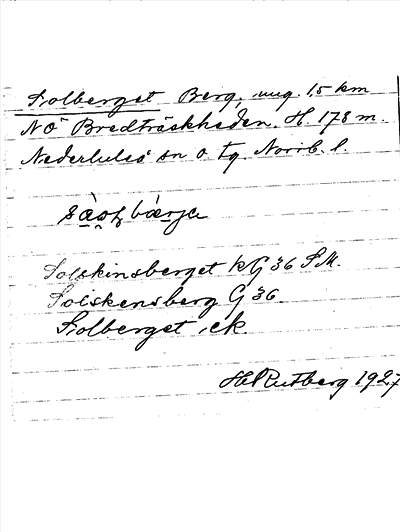 Solberget Berg, ung. 1,5 km
NÖ Bredträskheden. H. 178 m.
Nederluleå sn o. tg. Norrb. l.
Solskinsberget kG 36 S.M.
Solskensberg G 36.
Solberget, ek.
Hll Rutberg 1927